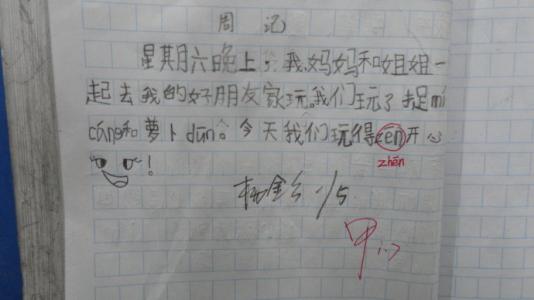 周记
星期六晚上，我、妈妈和姐姐一
起去我的好朋友家玩。我们玩了捉mí
cáng和萝卜dūn。今天我们玩得zēn开心
zhēn
！
1/5
甲